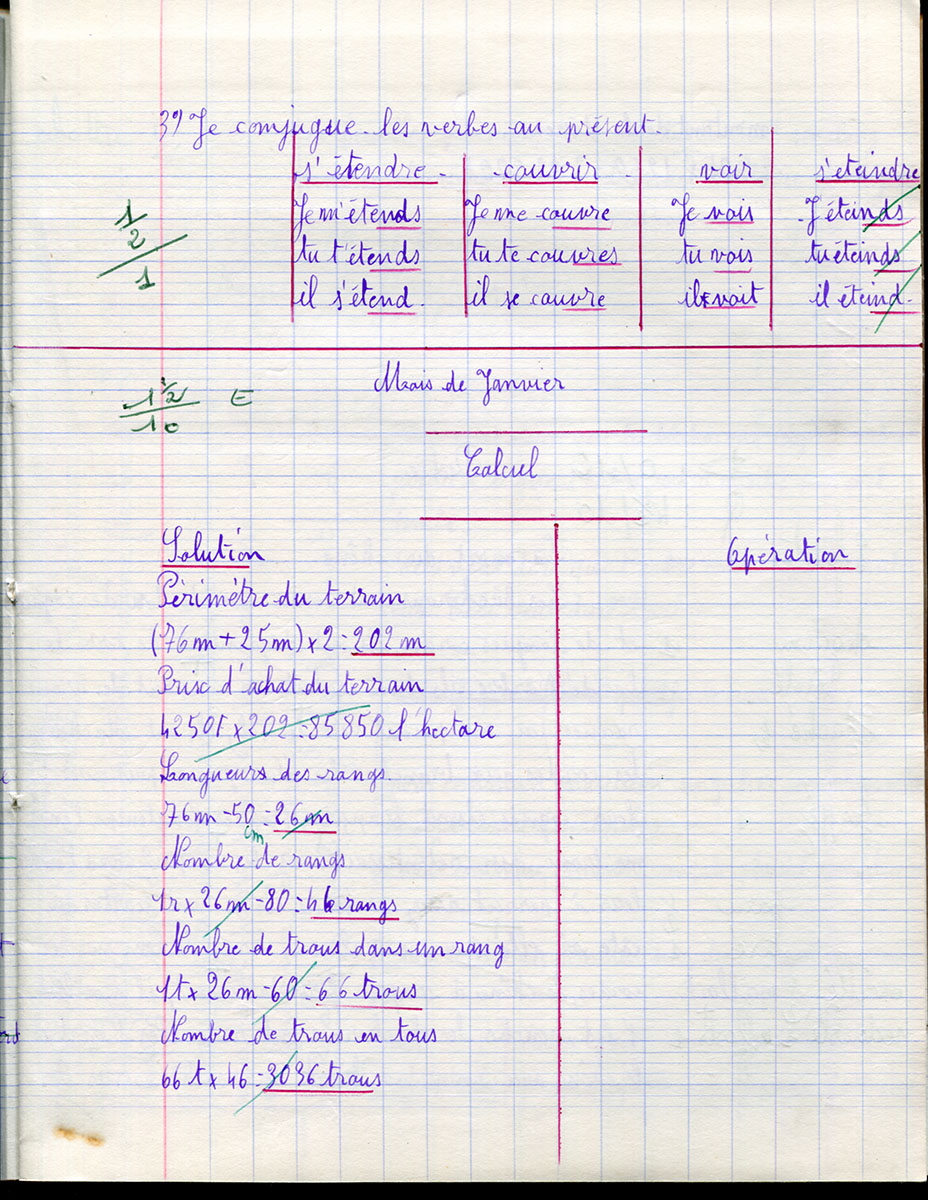 3º) Je conjugue les verbes au présent.
s'étendre couvrir voir s'eteindre
Je m'étends Je me couvre Je vois J'éteinds
1/2 / 1
tu t'étends tu te couvres tu vois tu éteinds
il s'étend. il se couvre il voit il éteind.
Mois de Janvier
1 1/2 / 10 E
Calcul
Solution Opération
Périmétre du terrain
(76m + 25m) x 2 = 202 m
Prix d'achat du terrain
4250f x 202 = 85850 l'hectare
Longueurs des rangs.
76m - 50 = 26m
cm
Nombre de rangs
1r x 26m - 80 = 46 rangs
Nombre de trous dans un rang
1t x 26m - 60 = 66 trous
Nombre de trous en tous
66 t x 46 = 3036 trous